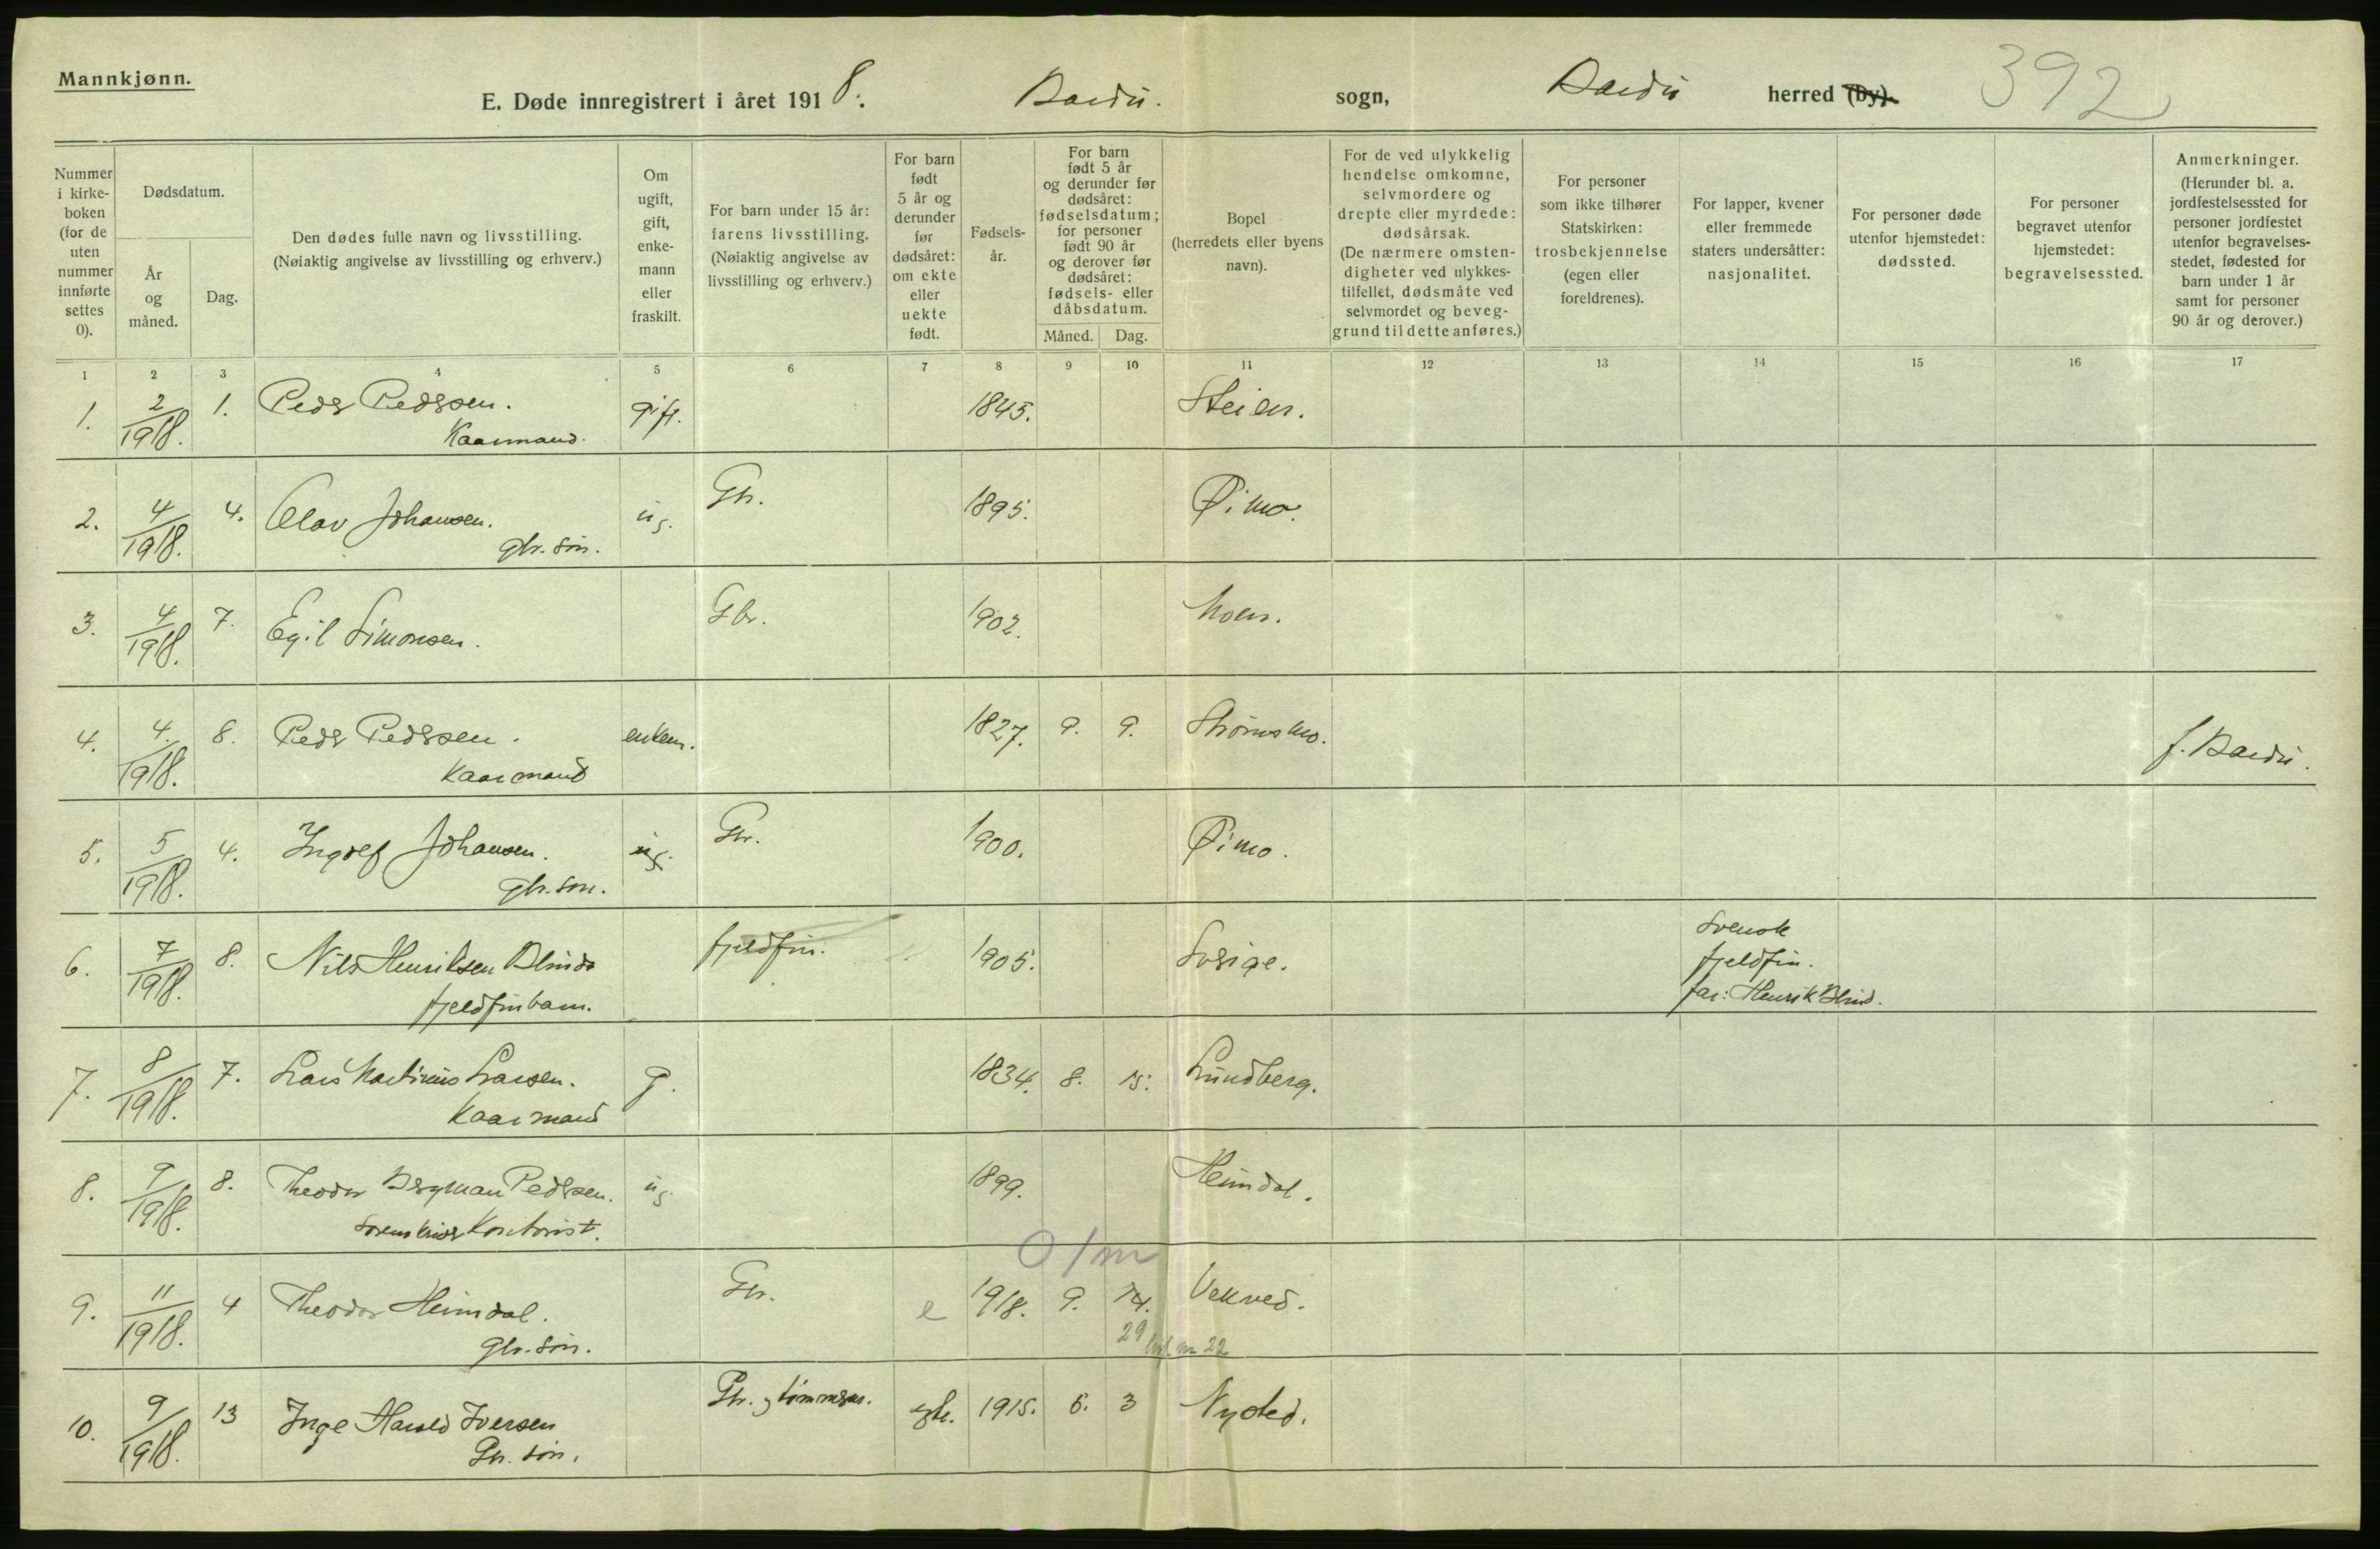 Mannkjønn.
E. Døde innregistrert i året 1918. Bardu. sogn, Bardu herred (by). 392
Nummer i kirke-boken (for de uten nummer innførte settes 0).
Dødsdatum.
År og måned.
Dag.
Den dødes fulle navn og livsstilling.
(Nøiaktig angivelse av livsstilling og erhverv.)
Om ugift, gift, enke-mann eller fraskilt.
For barn under 15 år: farens livsstilling.
(Nøiaktig angivelse av livsstilling og erhverv.)
For barn født 5 år og derunder før dødsåret: om ekte eller uekte født.
Fødsels-år.
For barn født 5 år og derunder før dødsåret: fødselsdatum; for personer født 90 år og derover før dødsåret: fødsels- eller dåbsdatum.
Måned. Dag.
Bopel
(herredets eller byens navn).
For de ved ulykkelig hendelse omkomne, selvmordere og drepte eller myrdede: dødsårsak.
(De nærmere omsten-digheter ved ulykkes-tilfellet, dødsmåte ved selvmordet og beveg-grund til dette anføres.)
For personer som ikke tilhører Statskirken: trosbekjennelse (egen eller foreldrenes).
For lapper, kvener eller fremmede staters undersåtter: nasjonalitet.
For personer døde utenfor hjemstedet: dødssted.
For personer begravet utenfor hjemstedet: begravelsessted.
Anmerkninger.
(Herunder bl. a. jordfestelsessted for personer jordfestet utenfor begravelses-stedet, fødested for barn under 1 år samt for personer 90 år og derover.)
1 2 3 4 5 6 7 8 9 10 11 12 13 14 15 16 17
1. 2/1918. 1. Peder Pedersen. gift. 1845. Steien.
Kaarmand.
2. 4/1918. 4. Olav Johansen. ug. Gbr. 1895. Øimo.
gbr. søn.
3. 4/1918. 7. Egil Simonsen. Gbr. 1902. Moen.
4. 4./1918. 8. Peder Pedersen. enkem. 1827. 9. 9. Strømsmo. f. Bardu.
Kaarmand
5. 5/1918. 4. Ingolf Johansen. ug. Gbr. 1900. Øimo.
gbr. søn.
6. 7/1918. 8. Nils Henriksen Blind fjeldfin. 1905. Sverige. Svensk
fjeldfinbarn. fjeldfin.
far: Henrik Blind.
7. 8/1918. 7. Lars Martinus Larsen. g. 1834. 8. 15. Lundberg.
Kaarmand
8. 9/1918. 8. Theodor Bergman Pedersen. ug. 1899. Heimdal.
Sorenskriver Kontorist.
0/m
9. 11/1918. 4 Theodor Heimdal. Gbr. e 1918. 9. 14. Vekved.
gbr. søn. 29 22
10. 9/1918. 13 Inge Harald Iversen Gbr. og tømmerm. egte. 1915. 6. 3 Nysted.
Gbr. søn.